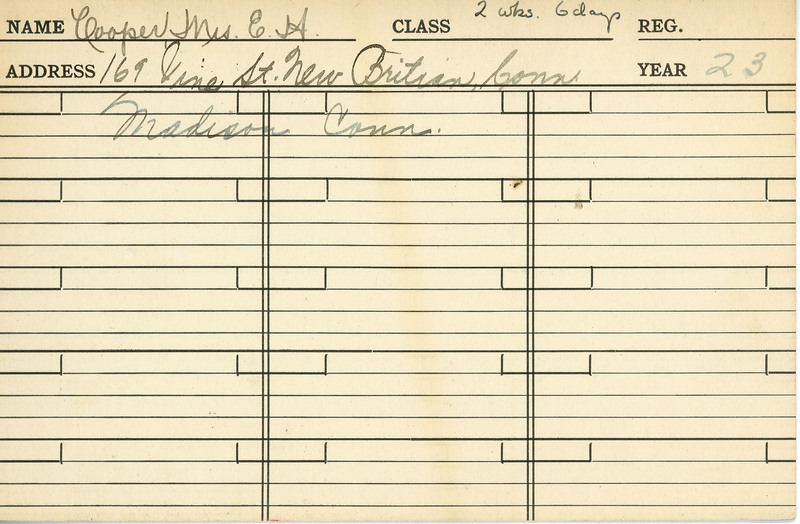 NAME Cooper Mrs. E. H. CLASS 2 wks. 6 days REG.
ADDRESS 169 Vine St. New Britian, Conn YEAR 23
Madison Conn.